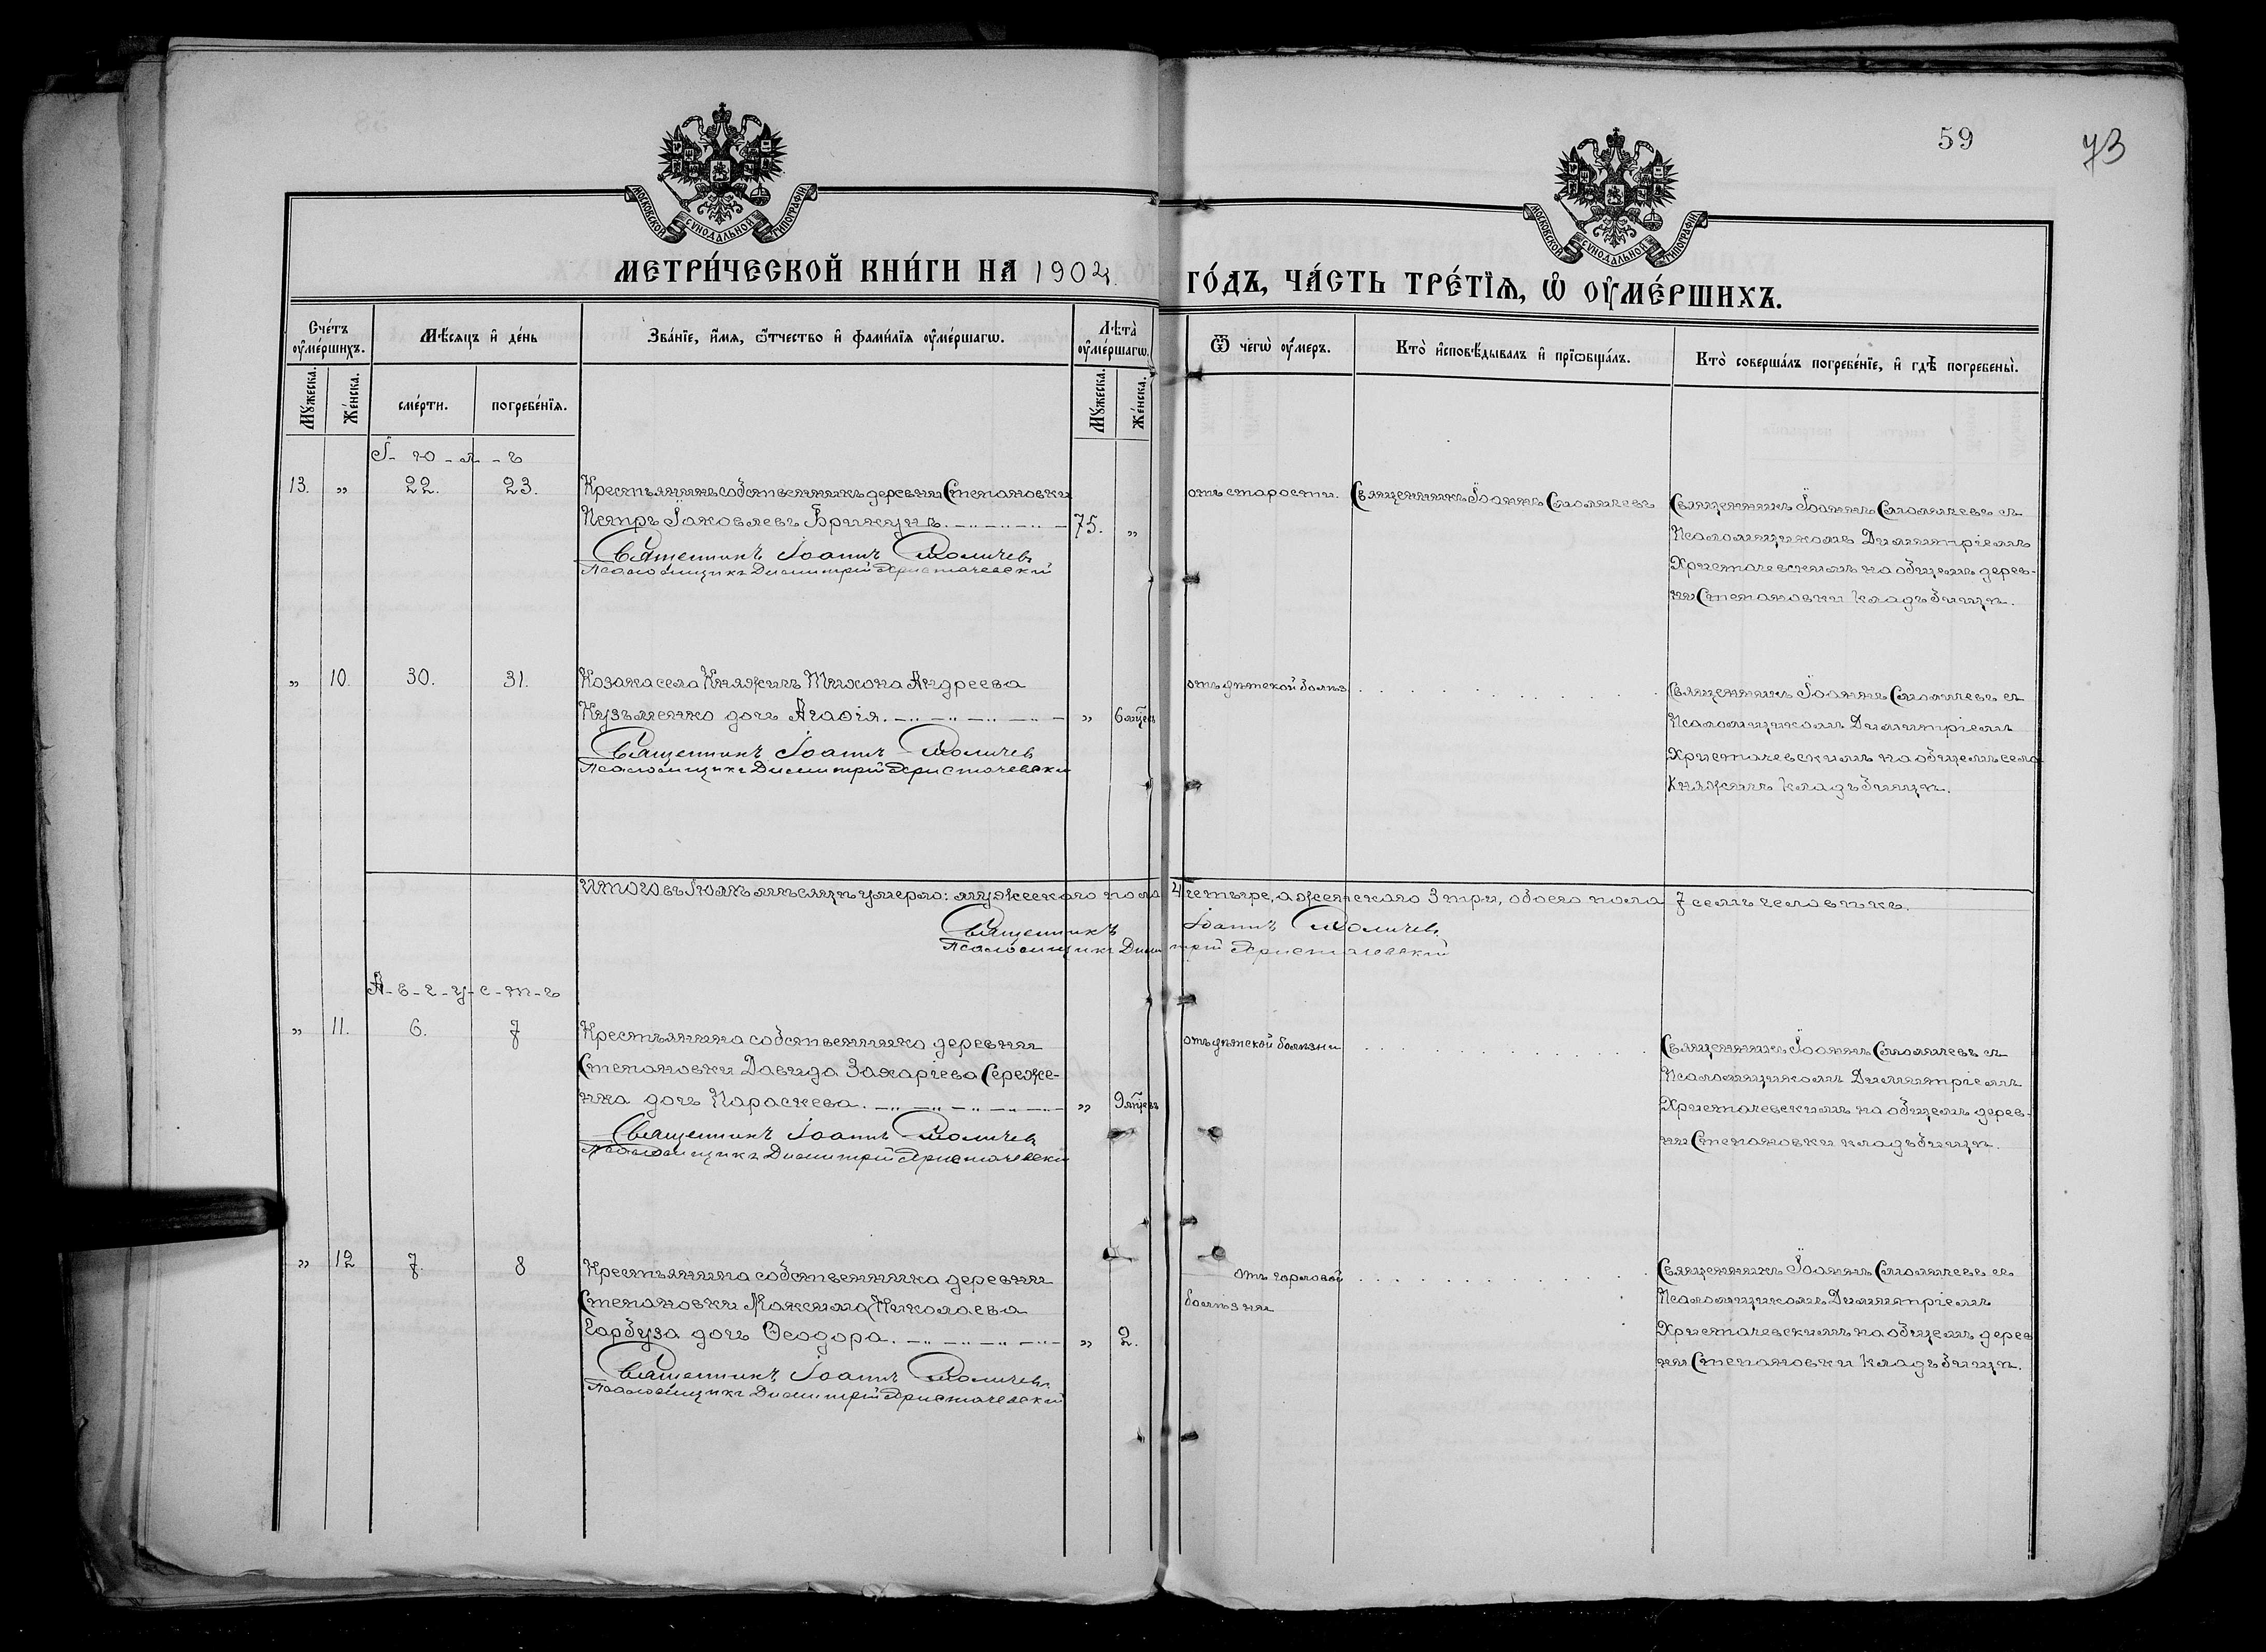 59
73
МОСКОВСКОЙ СѴНОДАЛЬНОЙ ТИПОГРАФІИ
МОСКОВСКОЙ СѴНОДАЛЬНОЙ ТИПОГРАФІИ
МЕТРИ́ЧЕСКОЙ КНИ́ГИ НА 1904 ГО́ДЪ, ЧА́СТЬ ТРЕ́ТЇѦ, Ѡ҆ ОУ҆МЕ́РШИХЪ.
Сче́тъ оу҆ме́ршихъ.
Мѣ́сѧцъ и҆ де́нь
Зва́нїе, и҆́мѧ, ѻ҆́тчество и҆ фами́лїѧ оу҆ме́ршагѡ.
Лѣ́та оу҆ме́ршагѡ.
Ѿ чегѡ̀ оу҆́меръ.
Кто̀ и҆сповѣ́дывалъ и҆ прїѡбща́лъ.
Кто̀ соверша́лъ погребе́нїе, и҆ гдѣ̀ погребены̀.
Мꙋ́жеска.
Же́нска.
сме́рти.
погребе́нїѧ.
Мꙋ́жеска.
Же́нска.
І-ю-л-ь
13. " 22. 23. Крестьянинъ собственникъ деревни Степановки
Петръ Іаковлевъ Брикунъ. 75. "
Священникъ Іоаннъ Смоличевъ
Псаломщикъ Димитрій Христачевскій
отъ старости. Священникъ Іоаннъ Смоличевъ
Священникъ Іоаннъ Смоличевъ съ
Псаломщикомъ Димитріемъ
Христачевскимъ на общемъ дерев-
ни Степановки кладбищѣ.
" 10. 30. 31. Козака села Княжичъ Тихона Андреева
Кузьменко дочь Агафія. " 6 мѣсец
Священникъ Іоаннъ Смоличевъ
Псаломщикъ Димитрій Христачевскій
отъ дѣтской болѣз
Священникъ Іоаннъ Смоличевъ съ
Псаломщикомъ Димитріемъ
Христачевскимъ на общемъ села
Княжичъ кладбищѣ.
Итого въ Іюлѣ мѣсяцѣ умерло: мужескаго пола 4 четыре, а женскаго 3 три, обоего пола 7 семь человѣкъ.
Священникъ Іоаннъ Смоличевъ
Псаломщикъ Димитрій Христачевскій
А-в-г-у-с-т-ъ
" 11. 6. 7 Крестьянина собственника деревни
Степановки Давида Захаріева Сереже-
нка дочь Параскева. " 9 мѣсцевъ
Священникъ Іоаннъ Смоличевъ
Псаломщикъ Димитрій Христачевскій
отъ дѣтской болѣзни
Священникъ Іоаннъ Смоличевъ съ
Псаломщикомъ Димитріемъ
Христачевскимъ на общемъ дерев-
ни Степановки кладбищѣ.
" 12 7. 8 Крестьянина собственника деревни
Степановки Максима Николаева
Гарбуза дочь Ѳеодора. " 2.
Священникъ Іоаннъ Смоличевъ
Псаломщикъ Димитрій Христачевскій
отъ горловой
болѣзни
Священникъ Іоаннъ Смоличевъ съ
Псаломщикомъ Димитріемъ
Христачевскимъ на общемъ дерев
ни Степановки кладбищѣ.